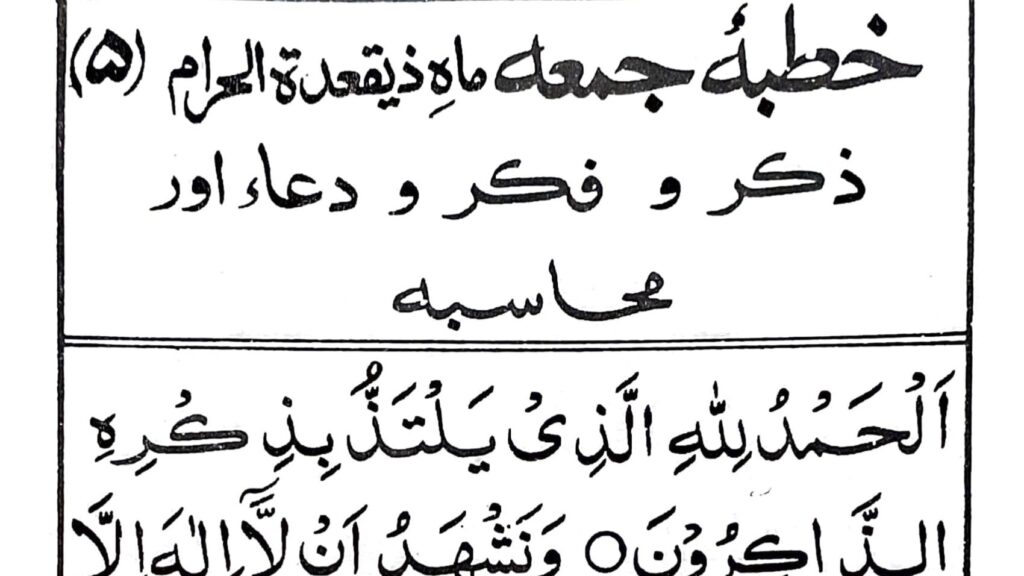 خطبۂ جمعہ ماہِ ذیقعدۃ الحرام (۵)
ذکر و فکر و دعاء اور
محاسبہ
اَلْحَمْدُ لِلّٰهِ الَّذِیْ یَلْتَذُّ بِذِکْرِهِ
الذَّاکِرُوْنَ ○ وَنَشْهَدُ اَنْ لَّاۤ اِلٰهَ اِلَّا